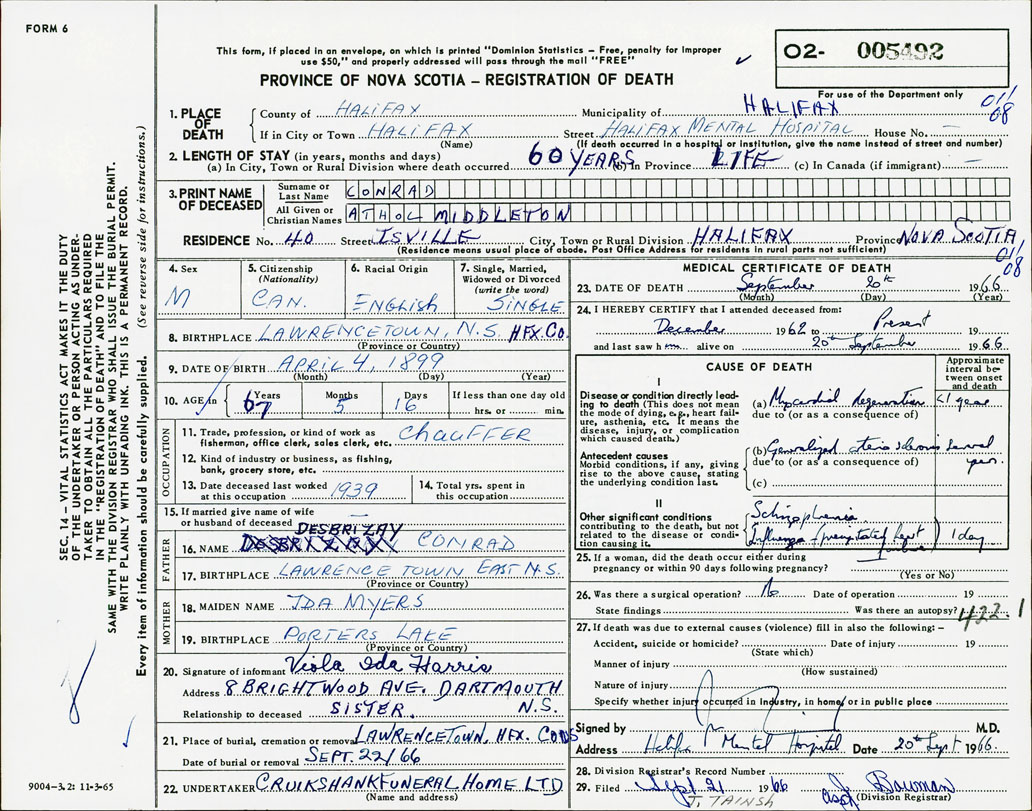 FORM 6
This form, if placed in an envelope, on which is printed "Dominion Statistics – Free, penalty for improper
use $50," and properly addressed will pass through the mail "FREE"
PROVINCE OF NOVA SCOTIA – REGISTRATION OF DEATH
O2- 005492
For use of the Department only
011/08
1. PLACE OF DEATH
County of HALIFAX Municipality of HALIFAX
If in City or Town HALIFAX Street HALIFAX MENTAL HOSPITAL House No. —
(Name) (If death occurred in a hospital or institution, give the name instead of street and number)
2. LENGTH OF STAY (in years, months and days)
(a) In City, Town or Rural Division where death occurred 60 YEARS (b) In Province LIFE (c) In Canada (if immigrant) —
3. PRINT NAME OF DECEASED
Surname or Last Name CONRAD
All Given or Christian Names ATHOL MIDDLETON
RESIDENCE No. 40 Street ISVILLE City, Town or Rural Division HALIFAX Province NOVA SCOTIA
(Residence means usual place of abode. Post Office Address for residents in rural parts not sufficient)
011/08
4. Sex
M
5. Citizenship (Nationality)
CAN.
6. Racial Origin
ENGLISH
7. Single, Married, Widowed or Divorced (write the word)
SINGLE
8. BIRTHPLACE LAWRENCETOWN, N.S. HFX. CO.
(Province or Country)
9. DATE OF BIRTH APRIL 4, 1899
(Month) (Day) (Year)
10. AGE in Years 67 Months 5 Days 16 If less than one day old hrs. or min.
OCCUPATION
11. Trade, profession, or kind of work as
fisherman, office clerk, sales clerk, etc. CHAUFFER
12. Kind of industry or business, as fishing,
bank, grocery store, etc.
13. Date deceased last worked
at this occupation 1939
14. Total yrs. spent in
this occupation
15. If married give name of wife
or husband of deceased —
FATHER
DESBRIZAY
16. NAME CONRAD
17. BIRTHPLACE LAWRENCE TOWN EAST N.S.
(Province or Country)
MOTHER
18. MAIDEN NAME IDA MYERS
19. BIRTHPLACE PORTERS LAKE
(Province or Country)
20. Signature of informant Viola Ida Harris
Address 8 BRIGHTWOOD AVE. DARTMOUTH
N.S.
Relationship to deceased SISTER.
21. Place of burial, cremation or removal LAWRENCETOWN, HFX. CO. NS
Date of burial or removal SEPT. 22/66
22. UNDERTAKER CRUIKSHANK FUNERAL HOME LTD
(Name and address)
MEDICAL CERTIFICATE OF DEATH
23. DATE OF DEATH September 20th 1966
(Month) (Day) (Year)
24. I HEREBY CERTIFY that I attended deceased from:
December 1962 to Present 19
and last saw him alive on 20th September 1966
CAUSE OF DEATH
Approximate interval between onset and death
I
Disease or condition directly leading to death (This does not mean
the mode of dying, e.g., heart failure, asthenia, etc. It means the
disease, injury, or complication
which caused death.)
(a) Myocardial Degeneration <1 year
due to (or as a consequence of)
Antecedent causes
Morbid conditions, if any, giving
rise to the above cause, stating
the underlying condition last.
(b) Generalized several years
due to (or as a consequence of)
(c)
II
Other significant conditions
contributing to the death, but not
related to the disease or condition causing it.
Schizophrenia
Influenza (precipitated heart failure) 1 day
25. If a woman, did the death occur either during
pregnancy or within 90 days following pregnancy?
(Yes or No)
26. Was there a surgical operation? No Date of operation 19
State findings Was there an autopsy?
422.1
27. If death was due to external causes (violence) fill in also the following: –
Accident, suicide or homicide? Date of injury 19
(State which)
Manner of injury
(How sustained)
Nature of injury
Specify whether injury occurred in industry, in home or in public place
Signed by M.D.
Address Halifax Mental Hospital Date 20th Sept 1966.
28. Division Registrar's Record Number
29. Filed Sept 21 1966 Bowman
J. TAINSH (Division Registrar)
SEC. 14 – VITAL STATISTICS ACT MAKES IT THE DUTY
OF THE UNDERTAKER OR PERSON ACTING AS UNDER-
TAKER TO OBTAIN ALL THE PARTICULARS REQUIRED
IN THE "REGISTRATION OF DEATH" AND TO FILE THE
SAME WITH THE DIVISION REGISTRAR WHO SHALL ISSUE THE BURIAL PERMIT.
WRITE PLAINLY WITH UNFADING INK. THIS IS A PERMANENT RECORD.
Every item of information should be carefully supplied. (See reverse side for instructions.)
9004-3.2: 11-3-65